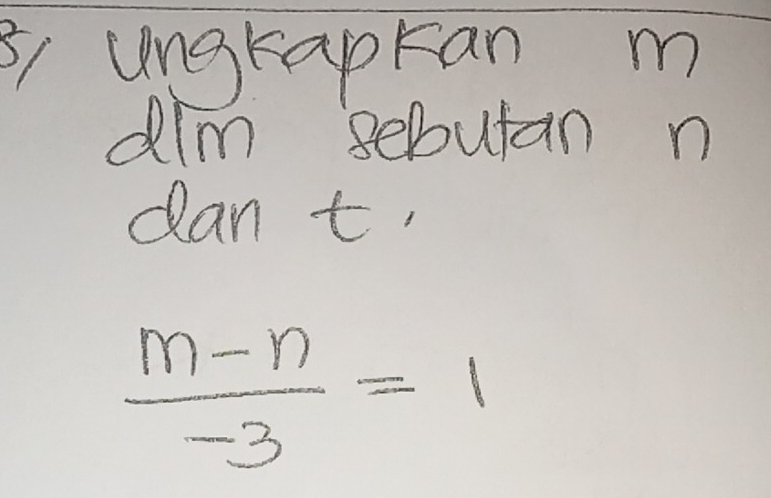 8, Ungkapkan m
dlm sebutan n
dan t.
m-n
-3
= 1